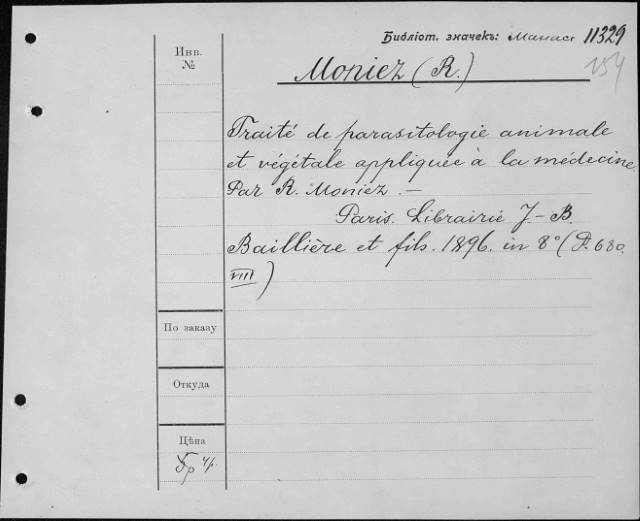 Библіот. значекъ: 11329
Инв.
№
Moniez (R.)
154
Traité de parasitologie animale
et végétale appliquée à la médecine.
Par R. Moniez. —
Paris. Librairie J.-B.
Baillière et fils. 1896. in 8° (P. 680.
VIII)
По заказу
Откуда
Цѣна